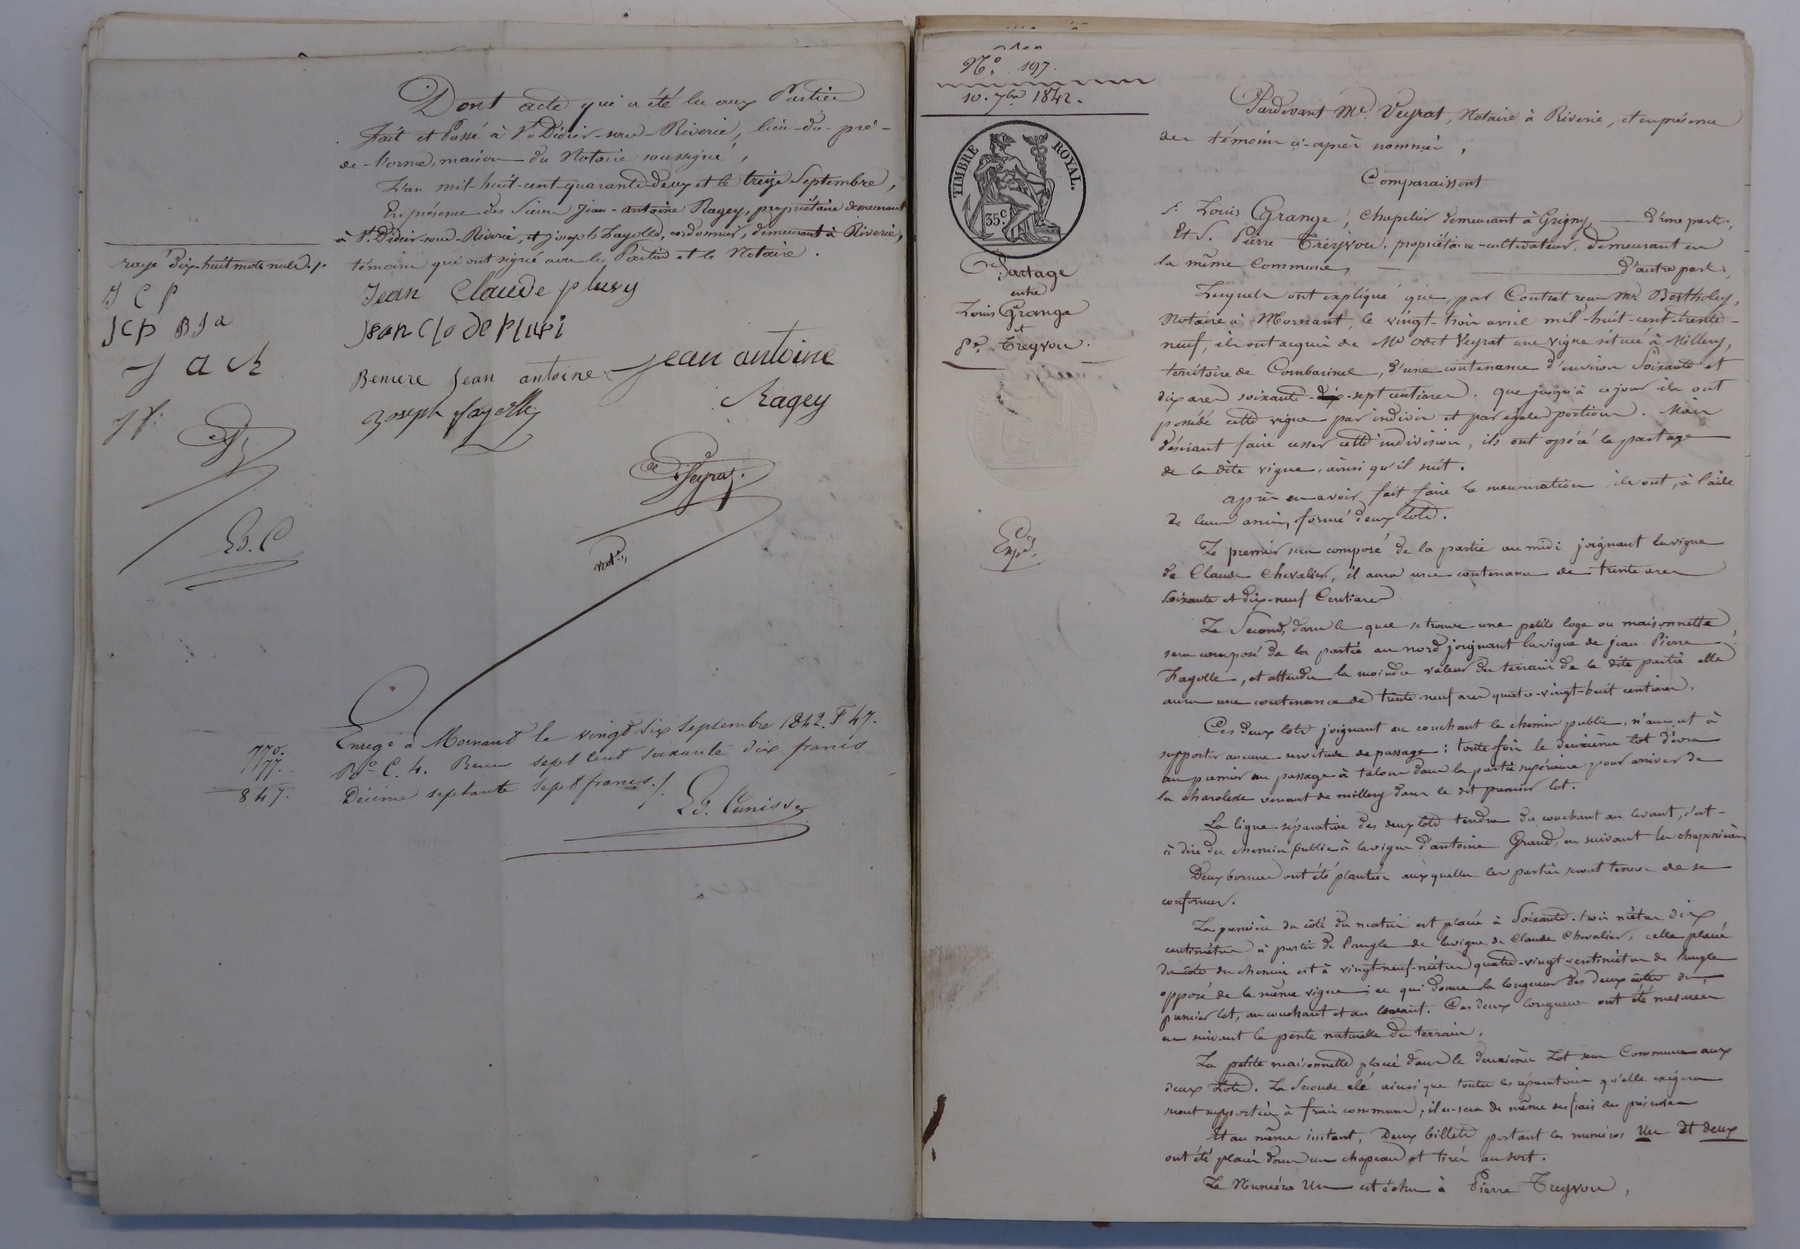 Dont acte qui a été lu aux Parties
Fait et Passé à St Didier-sous-Riverie, lieu-du-pré-
de-Vorne, maison du Notaire soussigné,
L'an mil-huit-cent-quarante-deux et le treize Septembre,
En présence des Sieurs Jean-antoine Ragey, propriétaire demeurant
à St Didier-sous-Riverie, et joseph fayolle, cordonnier, demeurant à Riverie,
témoins qui ont signé avec les Parties et le Notaire.
rayé dix-huit mots nuls./.
J C P
JCP BJa
J a R
J f.
Jean Claude pluvy
Jean Clode Pluvi
Beniere Jean antoine
Jean antoine
Ragey
Joseph fayolle
Veyrat
Not.re
Ed. C
Enregé à Mornant le vingt six septembre 1842. F 47.
Ro C. 4. Reçu sept cent soixante dix francs
Décime septante sept francs./.
770.
77.
847.
Ed. Cunisset
No. 197.
10. 7bre 1842.
TIMBRE ROYAL.
35c
Partage
entre
Louis Grange
et
Pre Treyvou.
Expé.
Pardevant Me Veyrat, Notaire à Riverie, et en présence
des témoins ci-après nommés,
Comparaissent
Sr Louis Grange, Chapelier demeurant à Grigny, d'une part;
Et S. Pierre Treyvou, propriétaire-cultivateur, demeurant en
la même Commune, d'autre part.
Lesquels ont expliqué que, par Contrat reçu Me Bertholey,
Notaire à Mornant, le vingt-trois avril mil-huit-cent-trente-
neuf, ils ont acquis de Me Veyrat une vigne située à Millery,
territoire de Combarinel, d'une contenance d'environ Soixante et
dix ares soixante-dix-sept centiares. que jusqu'à ce jour ils ont
possédé cette vigne par indivis et par égales portions. Mais
désirant faire cesser cette indivision, ils ont opéré le partage
de la dite vigne, ainsi qu'il suit.
après en avoir fait faire la mensuration ils ont, à l'aide
de leurs amis, formé deux lots.
Le premier sera composé de la partie au midi joignant la vigne
de Claude Chevalier, il aura une contenance de trente ares
soixante et dix-neuf Centiares
Le Second, dans le quel se trouve une petite loge ou maisonnette,
sera composé de la partie au nord joignant la vigne de jean Pierre
Fayolle, et attendu la moindre valeur du terrain de la dite partie elle
aura une contenance de trente-neuf ares quatre-vingt-huit centiares.
Ces deux lots joignant au couchant le chemin public, n'auront à
supporter aucune servitude de passage: toutefois le deuxième lot devra
au premier un passage à talons dans la partie supérieure pour arriver de
la charolesse venant de millery dans le dit premier lot.
La ligne séparative des deux lots tendra du couchant au levant, c'est-
à dire du chemin public à la vigne d'antoine Grand, en suivant les
Deux bornes ont été plantées auxquelles les parties seront tenues de se
conformer.
La première du côté du matin est placée à Soixante-trois mètres dix
centimètres à partir de l'angle de la vigne de Claude Chevalier, celle placée
du côté du chemin est à vingt-neuf-mètres quatre-vingt-centimètres de l'angle
opposé de la même vigne; ce qui donne la longueur des deux côtés du
premier lot, au couchant et au levant. Ces deux longueurs ont été mesurées
en suivant la pente naturelle du terrain.
La petite maisonnette placée dans le deuxième Lot sera Commune aux
deux Lots. La Seconde clé ainsi que toutes les réparations qu'elle exigera
seront supportées à frais communs; il en sera de même des frais des présentes
Et au même instant, Deux billets portant les numéros Un et deux
ont été placés dans un chapeau et tirés au sort.
Le Numéro Un est échu à Pierre Treyvou,